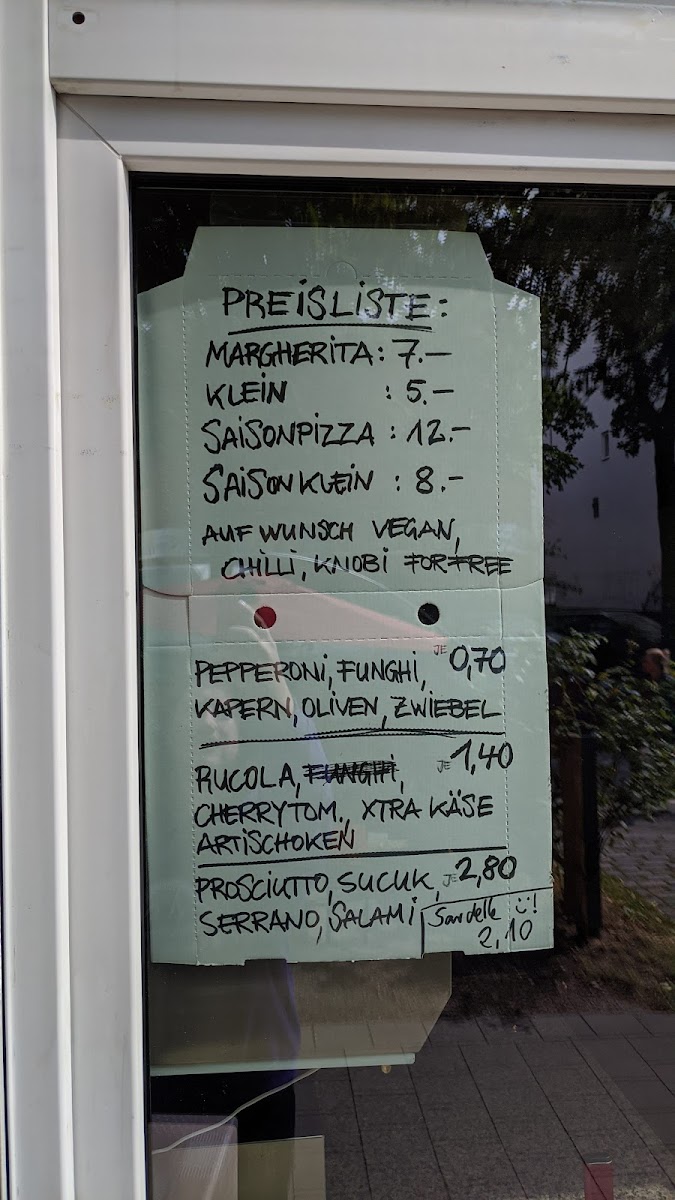 PREISLISTE:
MARGHERITA: 7.—
KLEIN : 5.—
SAISONPIZZA : 12.-
SAISON KLEIN : 8.-
AUF WUNSCH VEGAN,
CHILLI, KNOBI FOR FREE
PEPPERONI, FUNGHI, JE 0,70
KAPERN, OLIVEN, ZWIEBEL
RUCOLA, FUNGHI, JE 1,40
CHERRYTOM., XTRA KÄSE
ARTISCHOKEN
PROSCIUTTO, SUCUK, JE 2,80
SERRANO, SALAMI
Sardelle :)!
2,10